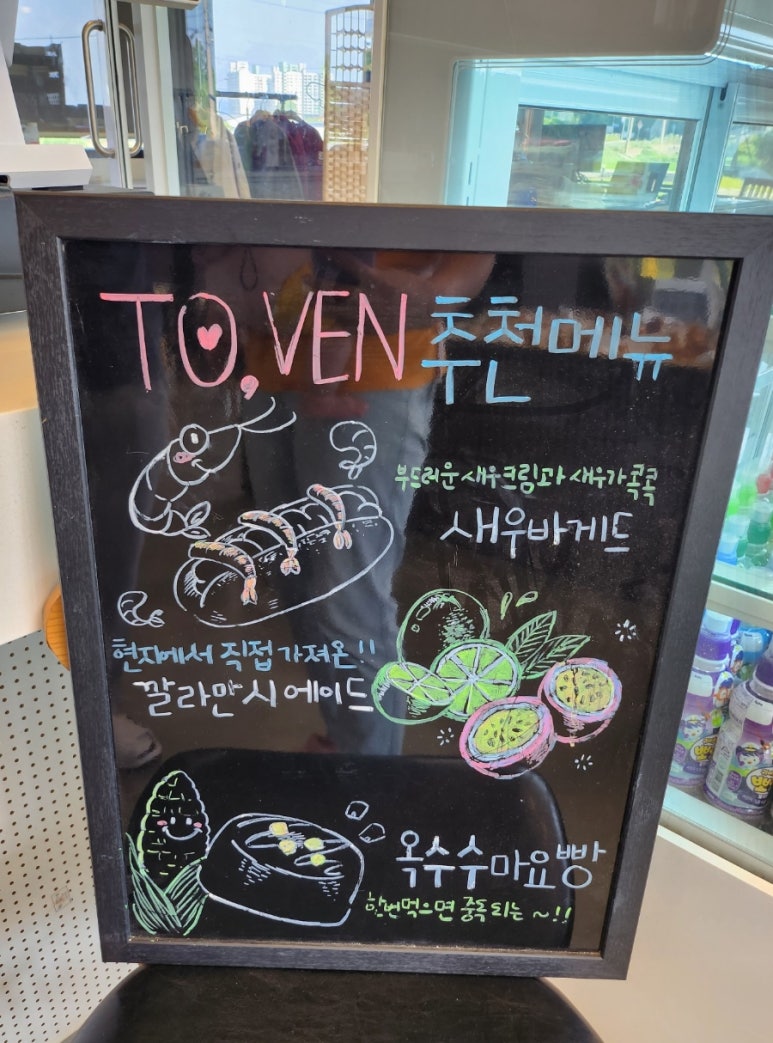 TO,VEN 추천메뉴
부드러운 새우크림과 새우가 콕콕
새우바게트
현지에서 직접 가져온!!
깔라만시에이드
옥수수마요빵
한번먹으면 중독되는 ~!!